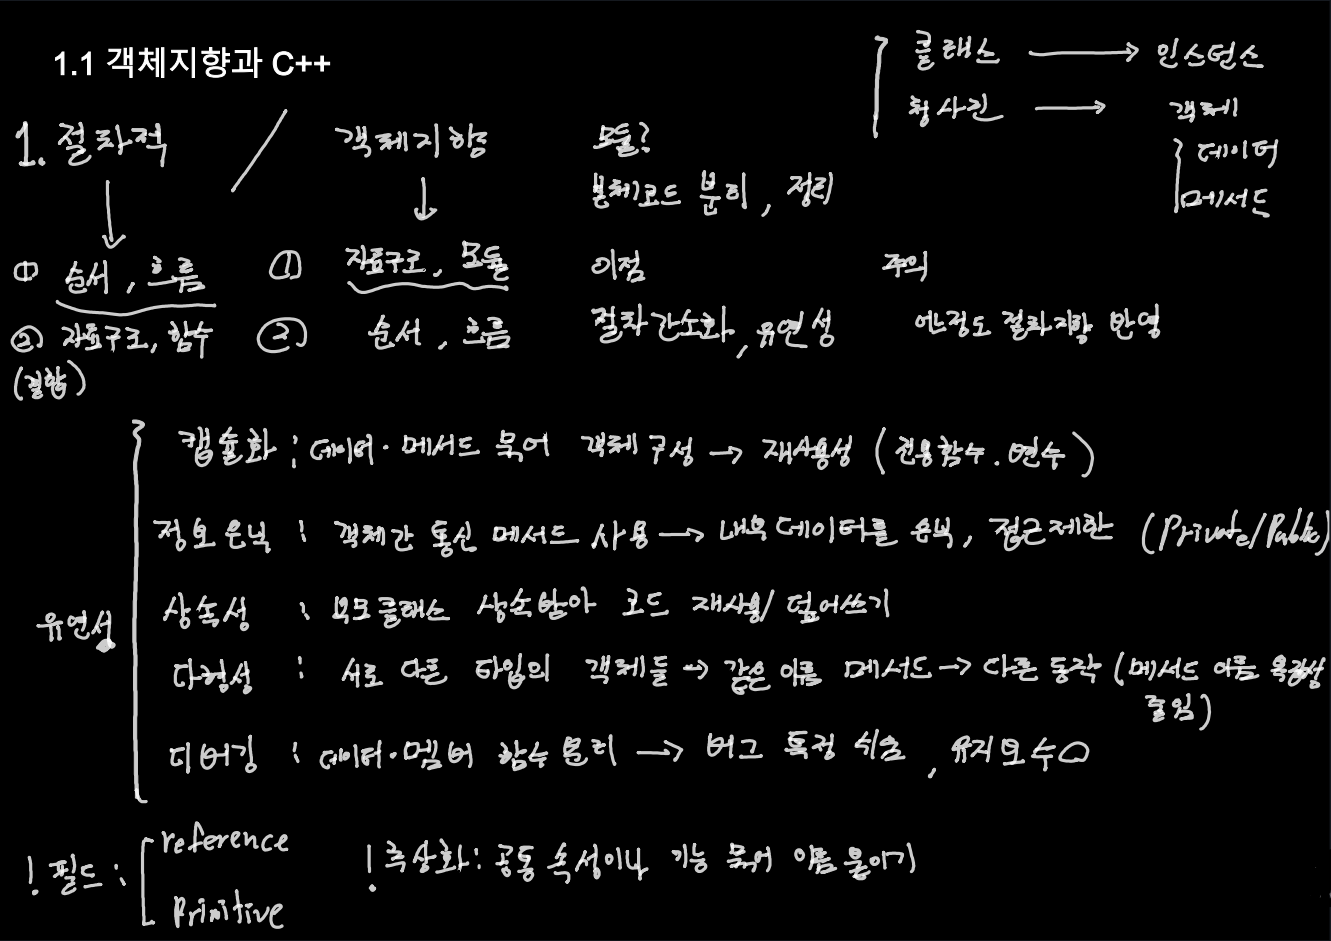 1.1 객체지향과 C++
클래스 → 인스턴스
청사진 → 객체
데이터
메서드
1. 절차적 / 객체지향
모듈?
본체코드 분리, 정리
① 순서, 흐름
② 자료구조, 함수
(결합)
① 자료구조, 모듈
② 순서, 흐름
이점
절차간소화, 유연성
주의
어느정도 절차지향 반영
유연성
캡슐화 : 데이터·메서드 묶어 객체 구성 → 재사용성 (전용함수·변수)
정보은닉 : 객체간 통신 메서드 사용 → 내부데이터를 은닉, 접근제한 (Private/Public)
상속성 : 부모클래스 상속받아 코드 재사용/덮어쓰기
다형성 : 서로 다른 타입의 객체들 → 같은 이름 메서드 → 다른 동작 (메서드 이름 복잡성
줄임)
디버깅 : 데이터·멤버 함수 분리 → 버그 특정 쉬움, 유지보수○
! 필드 :
reference
Primitive
! 추상화 : 공통 속성이나 기능 묶어 이름 붙이기